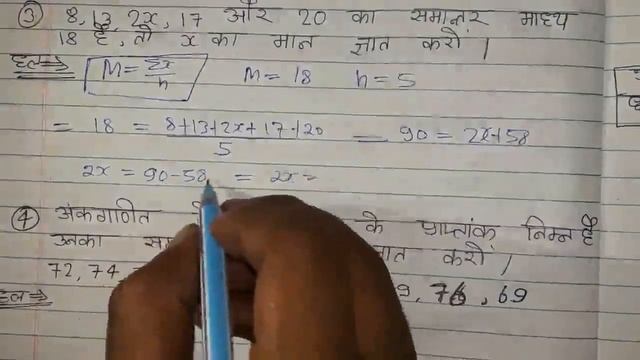 ③ 8, 13, 2x, 17 और 20 का समान्तर माध्य
18 है, तो x का मान ज्ञात करो।
हल⇒ M = Σx/n M = 18 n = 5
= 18 = 8+13+2x+17+20/5 = 90 = 2x+58
2x = 90-58 = 2x =
④ अंकगणित के प्राप्तांक निम्न है
उनका करो।
72, 74 76, 69
हल⇒